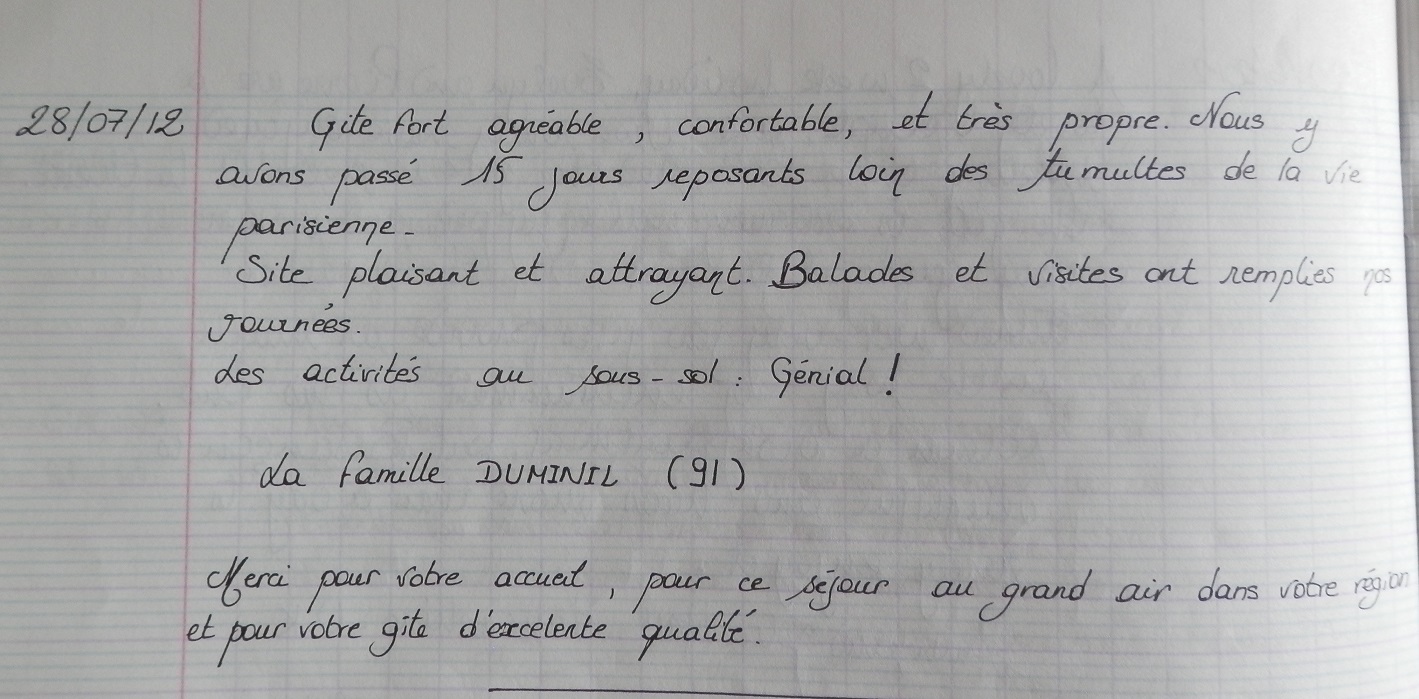 28/07/12 Gite fort agréable, confortable, et très propre. Nous y
avons passé 15 jours reposants loin des tumultes de la vie
parisienne.
Site plaisant et attrayant. Balades et visites ont remplies nos
journées.
des activités au sous-sol : Génial !
La famille DUMINIL (91)
Merci pour votre accueil, pour ce séjour au grand air dans votre région
et pour votre gite d'excelente qualité.